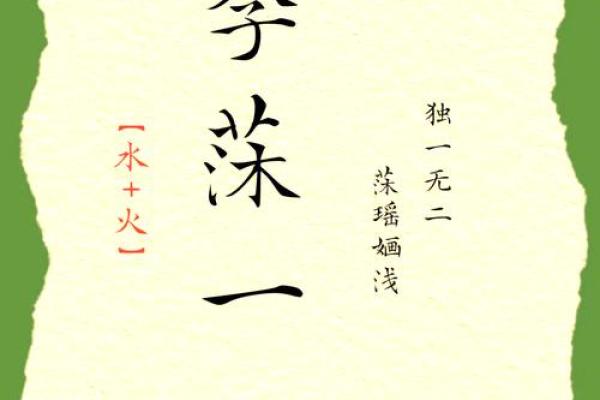 独一无二
莯瑶婳浅
莯一
【水+火】